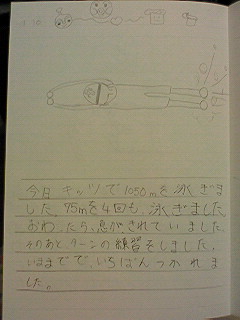 今日 キッツで1050mを泳ぎま
した。75mを4回も、泳ぎました
おわったら、息がきれていました。
そのあと、ターンの練習をしました。
いままでで、いちばんつかれま
した。